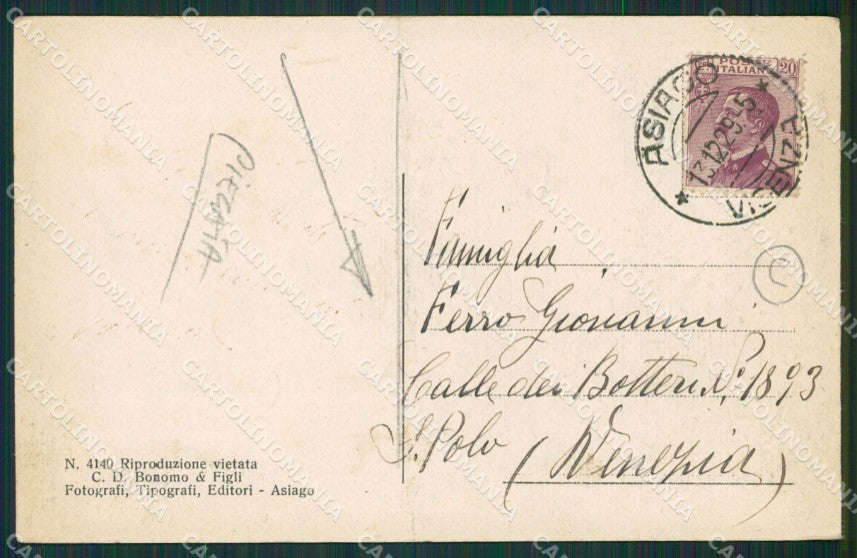 PIEGATA
N. 4140 Riproduzione vietata
C. D. Bonomo & Figli
Fotografi, Tipografi, Editori - Asiago
POSTE 20
ITALIANE
ASIAGO
13.12.29.5
VICENZA
Famiglia
Ferro Giovanni
Calle dei Botteri N.º 1893
S. Polo (Venezia)
CARTOLINOMANIA